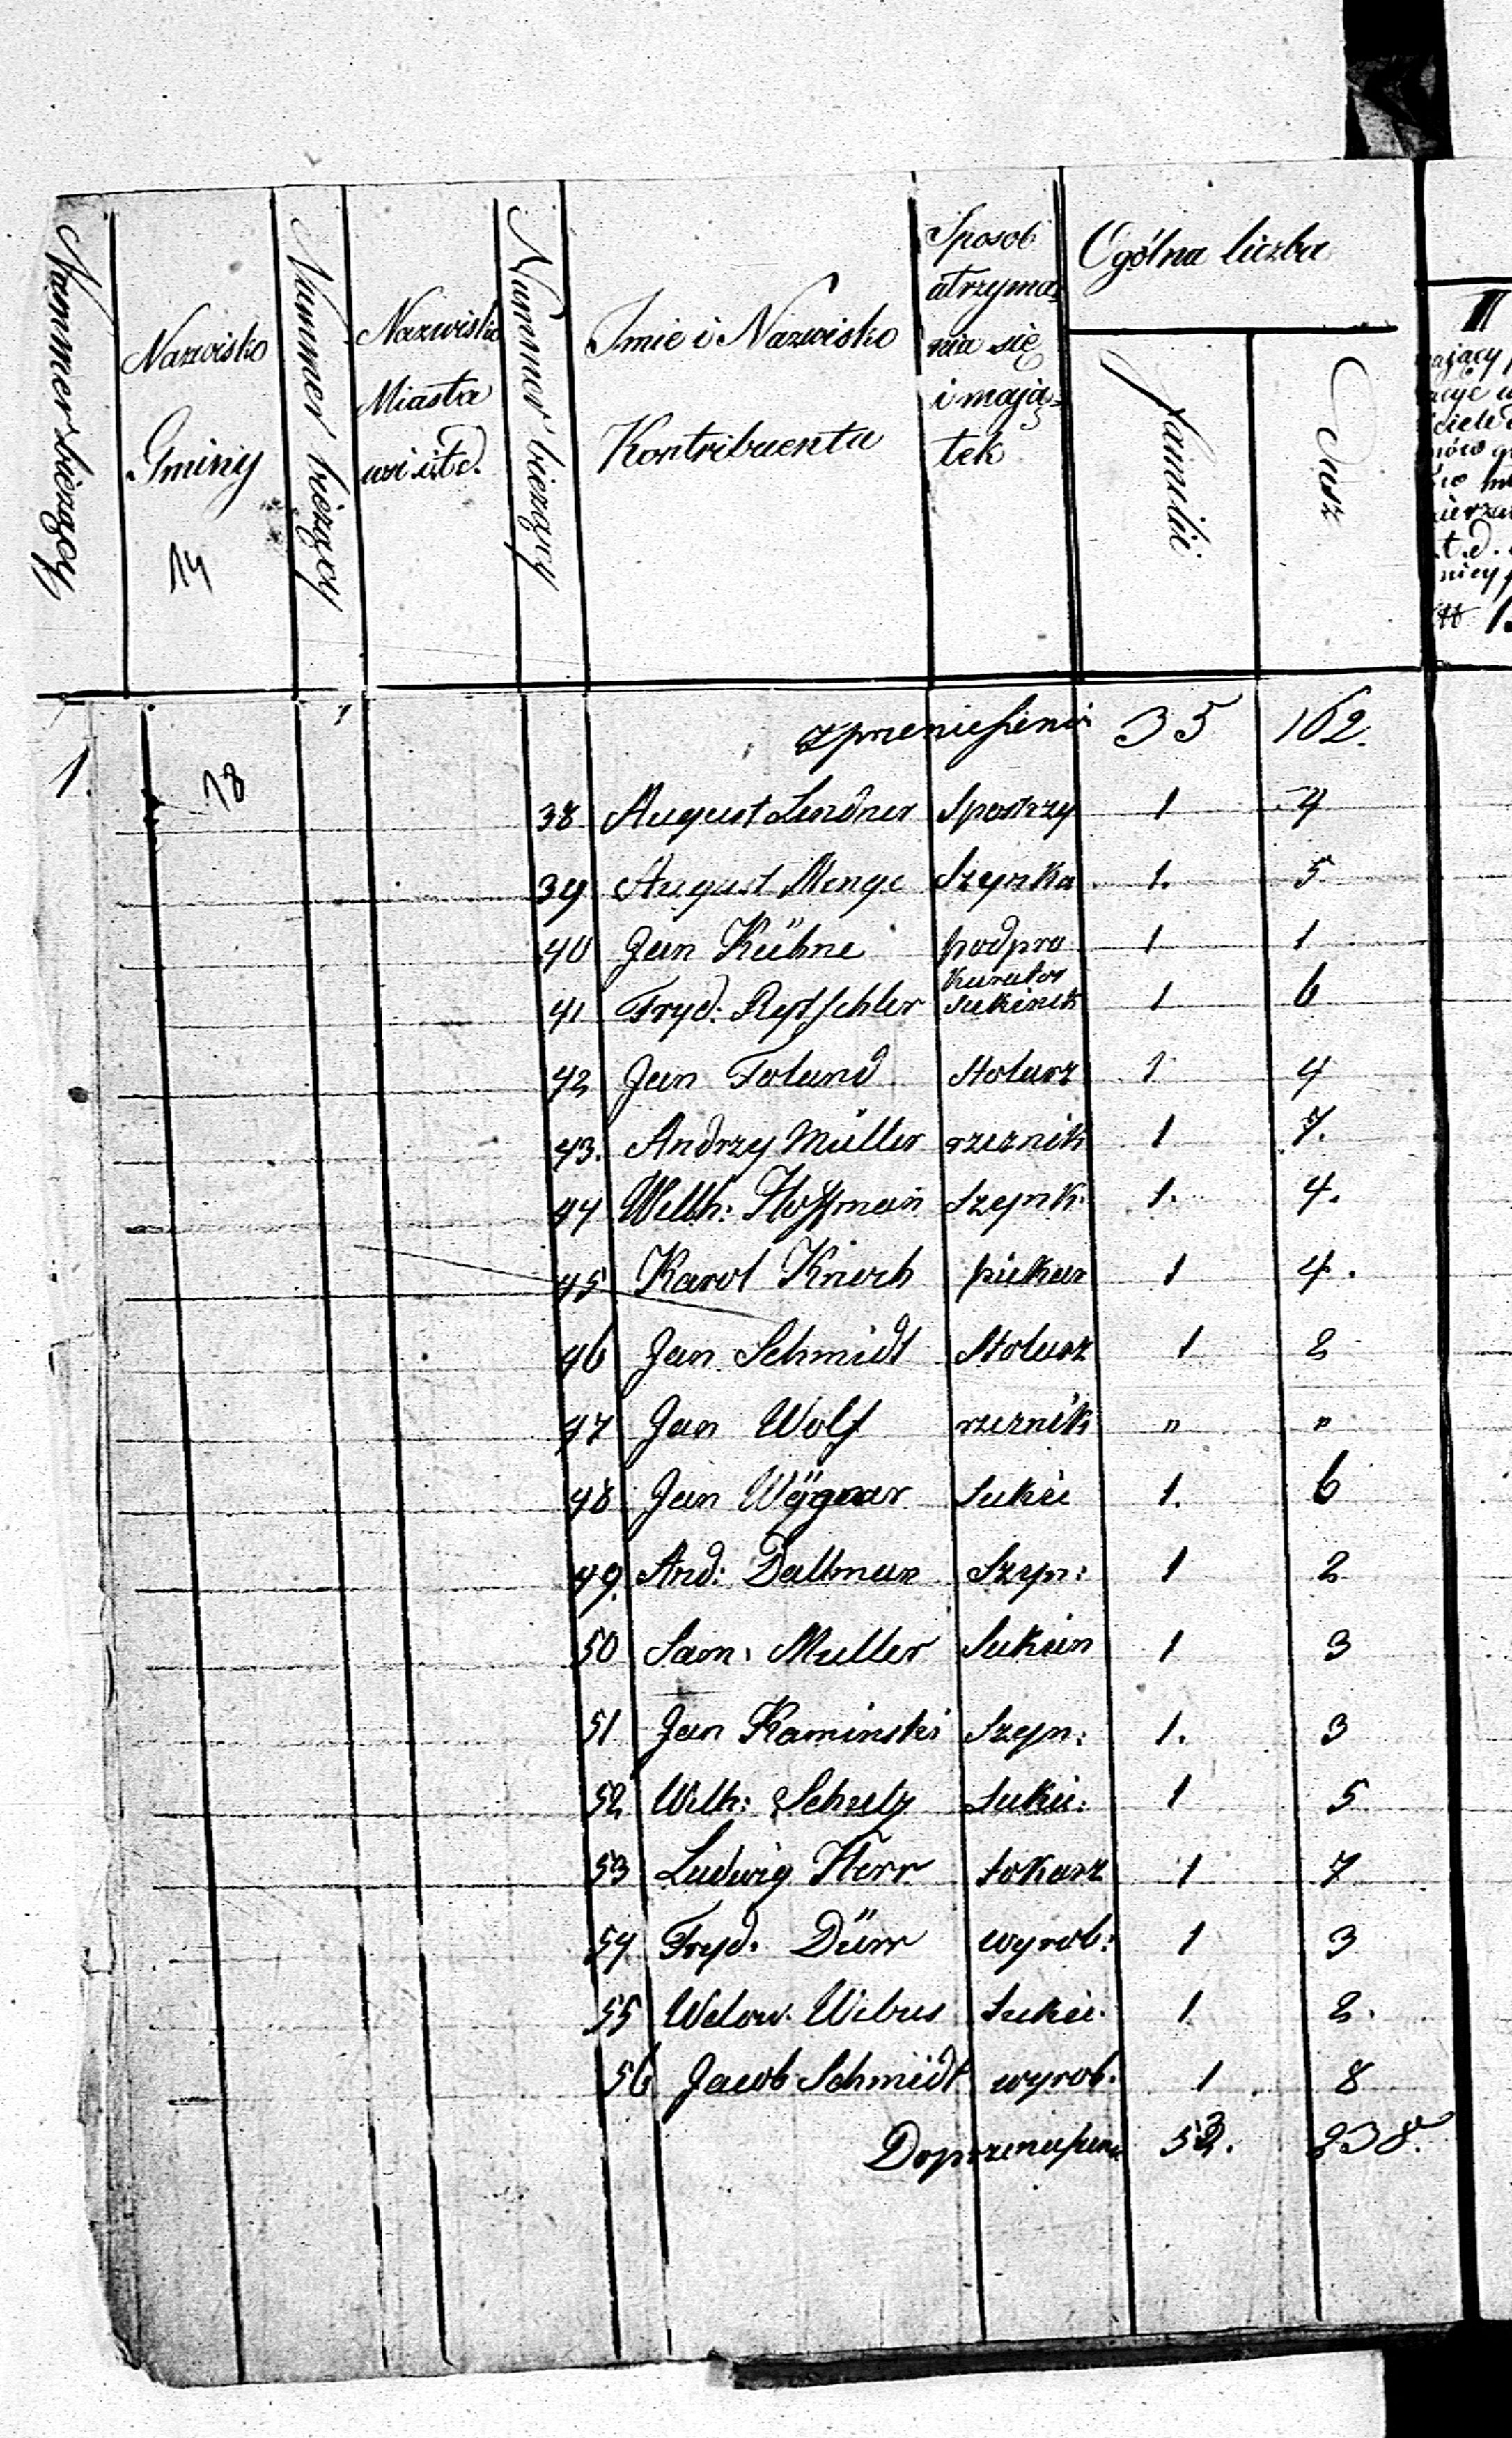 Nummer bieżący
Nazwisko Gminy
14
Nummer bieżący
Nazwisko Miasta wsi i t d.
Nummer bieżący
Imie i Nazwisko Kontribuenta
Sposob utrzyma= nia się i mają= tek
Ogólna liczba
familii
Dusz
III
z przeniesienia 35 162.
1. 18
38 August Lindner Spostrzy 1 4
39 August Menge Szynka 1. 5
40 Jan Kühne podpro kurator 1 1
41 Fryd: Rytschler sukienik 1 6
42 Jan Foland Stolarz 1 4
43. Andrzy Müller rzeznik 1 7.
44 Wilh: Hoffman Szynk: 1. 4.
45 Karol Knoch piekar 1 4.
46 Jan Schmidt Stolarz 1 2
47 Jan Wolf rzeznik " "
48 Jan Wÿgnar Sukie 1. 6
49. And: Dallman Szyn: 1 2
50 Sam: Muller Sukien 1 3
51 Jan Kaminski Szyn: 1. 3
52 Wilh: Schulz Sukie: 1 5
53 Ludwig Herr tokarz 1 7
54 Fryd. Dürr wyrob: 1 3
55 Wibus Sukie. 1 2.
56 Jacob Schmidt wyrob. 1 8
Do przeniesienia 53. 238.